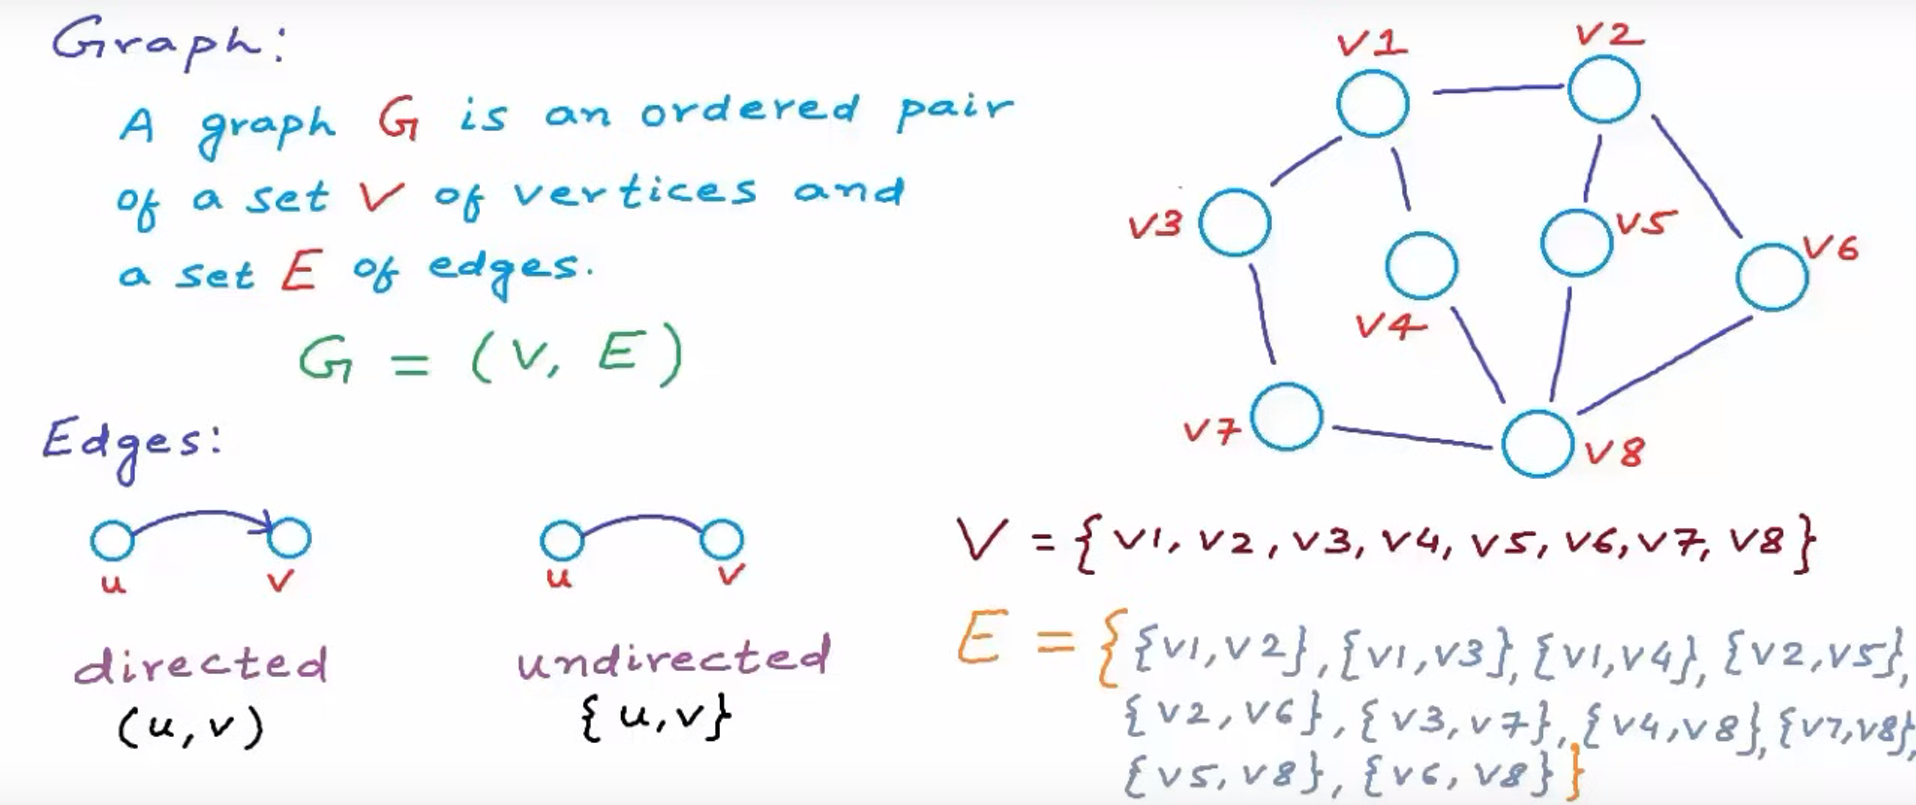 Graph:
A graph G is an ordered pair
of a set V of vertices and
a set E of edges.
G = (V, E)
Edges:
u v
directed
(u, v)
u v
undirected
{u, v}
v1 v2
v3 v5 v6
v4
v7 v8
V = {v1, v2, v3, v4, v5, v6, v7, v8}
E = {{v1, v2}, {v1, v3}, {v1, v4}, {v2, v5},
{v2, v6}, {v3, v7}, {v4, v8}, {v7, v8},
{v5, v8}, {v6, v8}}